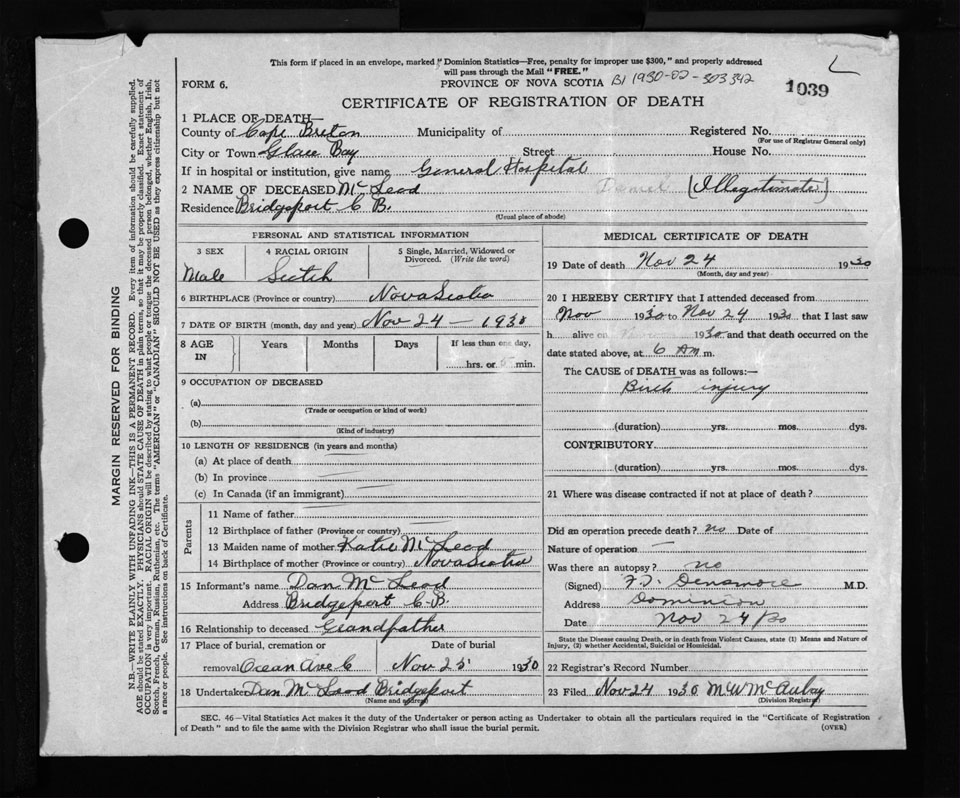 This form if placed in an envelope, marked "Dominion Statistics—Free, penalty for improper use $300," and properly addressed
will pass through the Mail "FREE."
FORM 6.
PROVINCE OF NOVA SCOTIA B1 1930-02-303342
1039
CERTIFICATE OF REGISTRATION OF DEATH
1 PLACE OF DEATH—
County of Cape Breton Municipality of Registered No.
(For use of Registrar General only)
City or Town Glace Bay Street House No.
If in hospital or institution, give name General Hospital
2 NAME OF DECEASED McLeod Daniel (Illegitimate)
Residence Bridgeport C B.
(Usual place of abode)
PERSONAL AND STATISTICAL INFORMATION
3 SEX 4 RACIAL ORIGIN 5 Single, Married, Widowed or
Divorced. (Write the word)
Male Scotch
6 BIRTHPLACE (Province or country) Nova Scotia
7 DATE OF BIRTH (month, day and year) Nov 24 — 1930
8 AGE IN Years Months Days If less than one day,
hrs. or 5 min.
9 OCCUPATION OF DECEASED
(a)
(Trade or occupation or kind of work)
(b)
(Kind of industry)
10 LENGTH OF RESIDENCE (in years and months)
(a) At place of death
(b) In province
(c) In Canada (if an immigrant)
Parents
11 Name of father
12 Birthplace of father (Province or country)
13 Maiden name of mother Katie McLeod
14 Birthplace of mother (Province or country) Nova Scotia
15 Informant's name Dan McLeod
Address Bridgeport C.B.
16 Relationship to deceased Grandfather
17 Place of burial, cremation or Date of burial
removal Ocean Ave C Nov 25 1930
18 Undertaker Dan McLeod Bridgeport
(Name and address)
MEDICAL CERTIFICATE OF DEATH
19 Date of death Nov 24 1930
(Month, day and year)
20 I HEREBY CERTIFY that I attended deceased from
Nov 1930 to Nov 24 1930 that I last saw
h alive on 1930 and that death occurred on the
date stated above, at 6 AM m.
The CAUSE of DEATH was as follows:—
Birth injury
(duration) yrs. mos. dys.
CONTRIBUTORY
(duration) yrs. mos. dys.
21 Where was disease contracted if not at place of death?
Did an operation precede death? no Date of
Nature of operation —
Was there an autopsy? no
(Signed) F.T. Densmore M.D.
Address Dominion
Date Nov 24/30
State the Disease causing Death, or in death from Violent Causes, state (1) Means and Nature of
Injury, (2) whether Accidental, Suicidal or Homicidal.
22 Registrar's Record Number
23 Filed Nov 24 1930 M W McAulay
(Division Registrar)
SEC. 46—Vital Statistics Act makes it the duty of the Undertaker or person acting as Undertaker to obtain all the particulars required in the "Certificate of Registration
of Death" and to file the same with the Division Registrar who shall issue the burial permit.
(OVER)
MARGIN RESERVED FOR BINDING
N.B.—WRITE PLAINLY WITH UNFADING INK—THIS IS A PERMANENT RECORD. Every item of information should be carefully supplied.
AGE should be stated EXACTLY. PHYSICIANS should STATE CAUSE OF DEATH in plain terms, so that it may be properly classified. Exact statement of
OCCUPATION is very important. RACIAL ORIGIN will be described by stating to what people or tongue the deceased person belonged, whether English, Irish,
Scotch, French, German, Russian, Ruthenian, etc. The terms "AMERICAN" or "CANADIAN" SHOULD NOT BE USED as they express citizenship but not
a race or people. See instructions on back of Certificate.